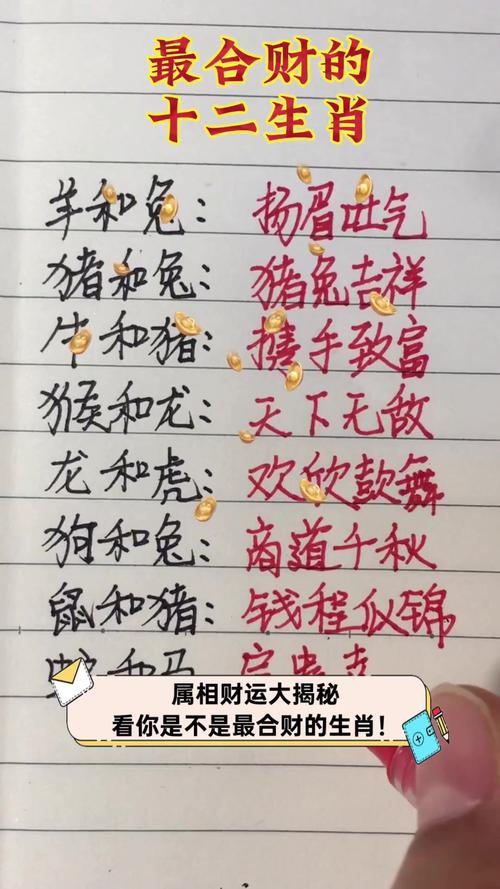 最合财的
十二生肖
羊和兔：扬眉吐气
猪和兔：猪兔吉祥
牛和猪：携手致富
猴和龙：天下无敌
龙和虎：欢欣鼓舞
狗和兔：商道千秋
鼠和猪：钱程似锦
属相财运大揭秘
看你是不是最合财的生肖！